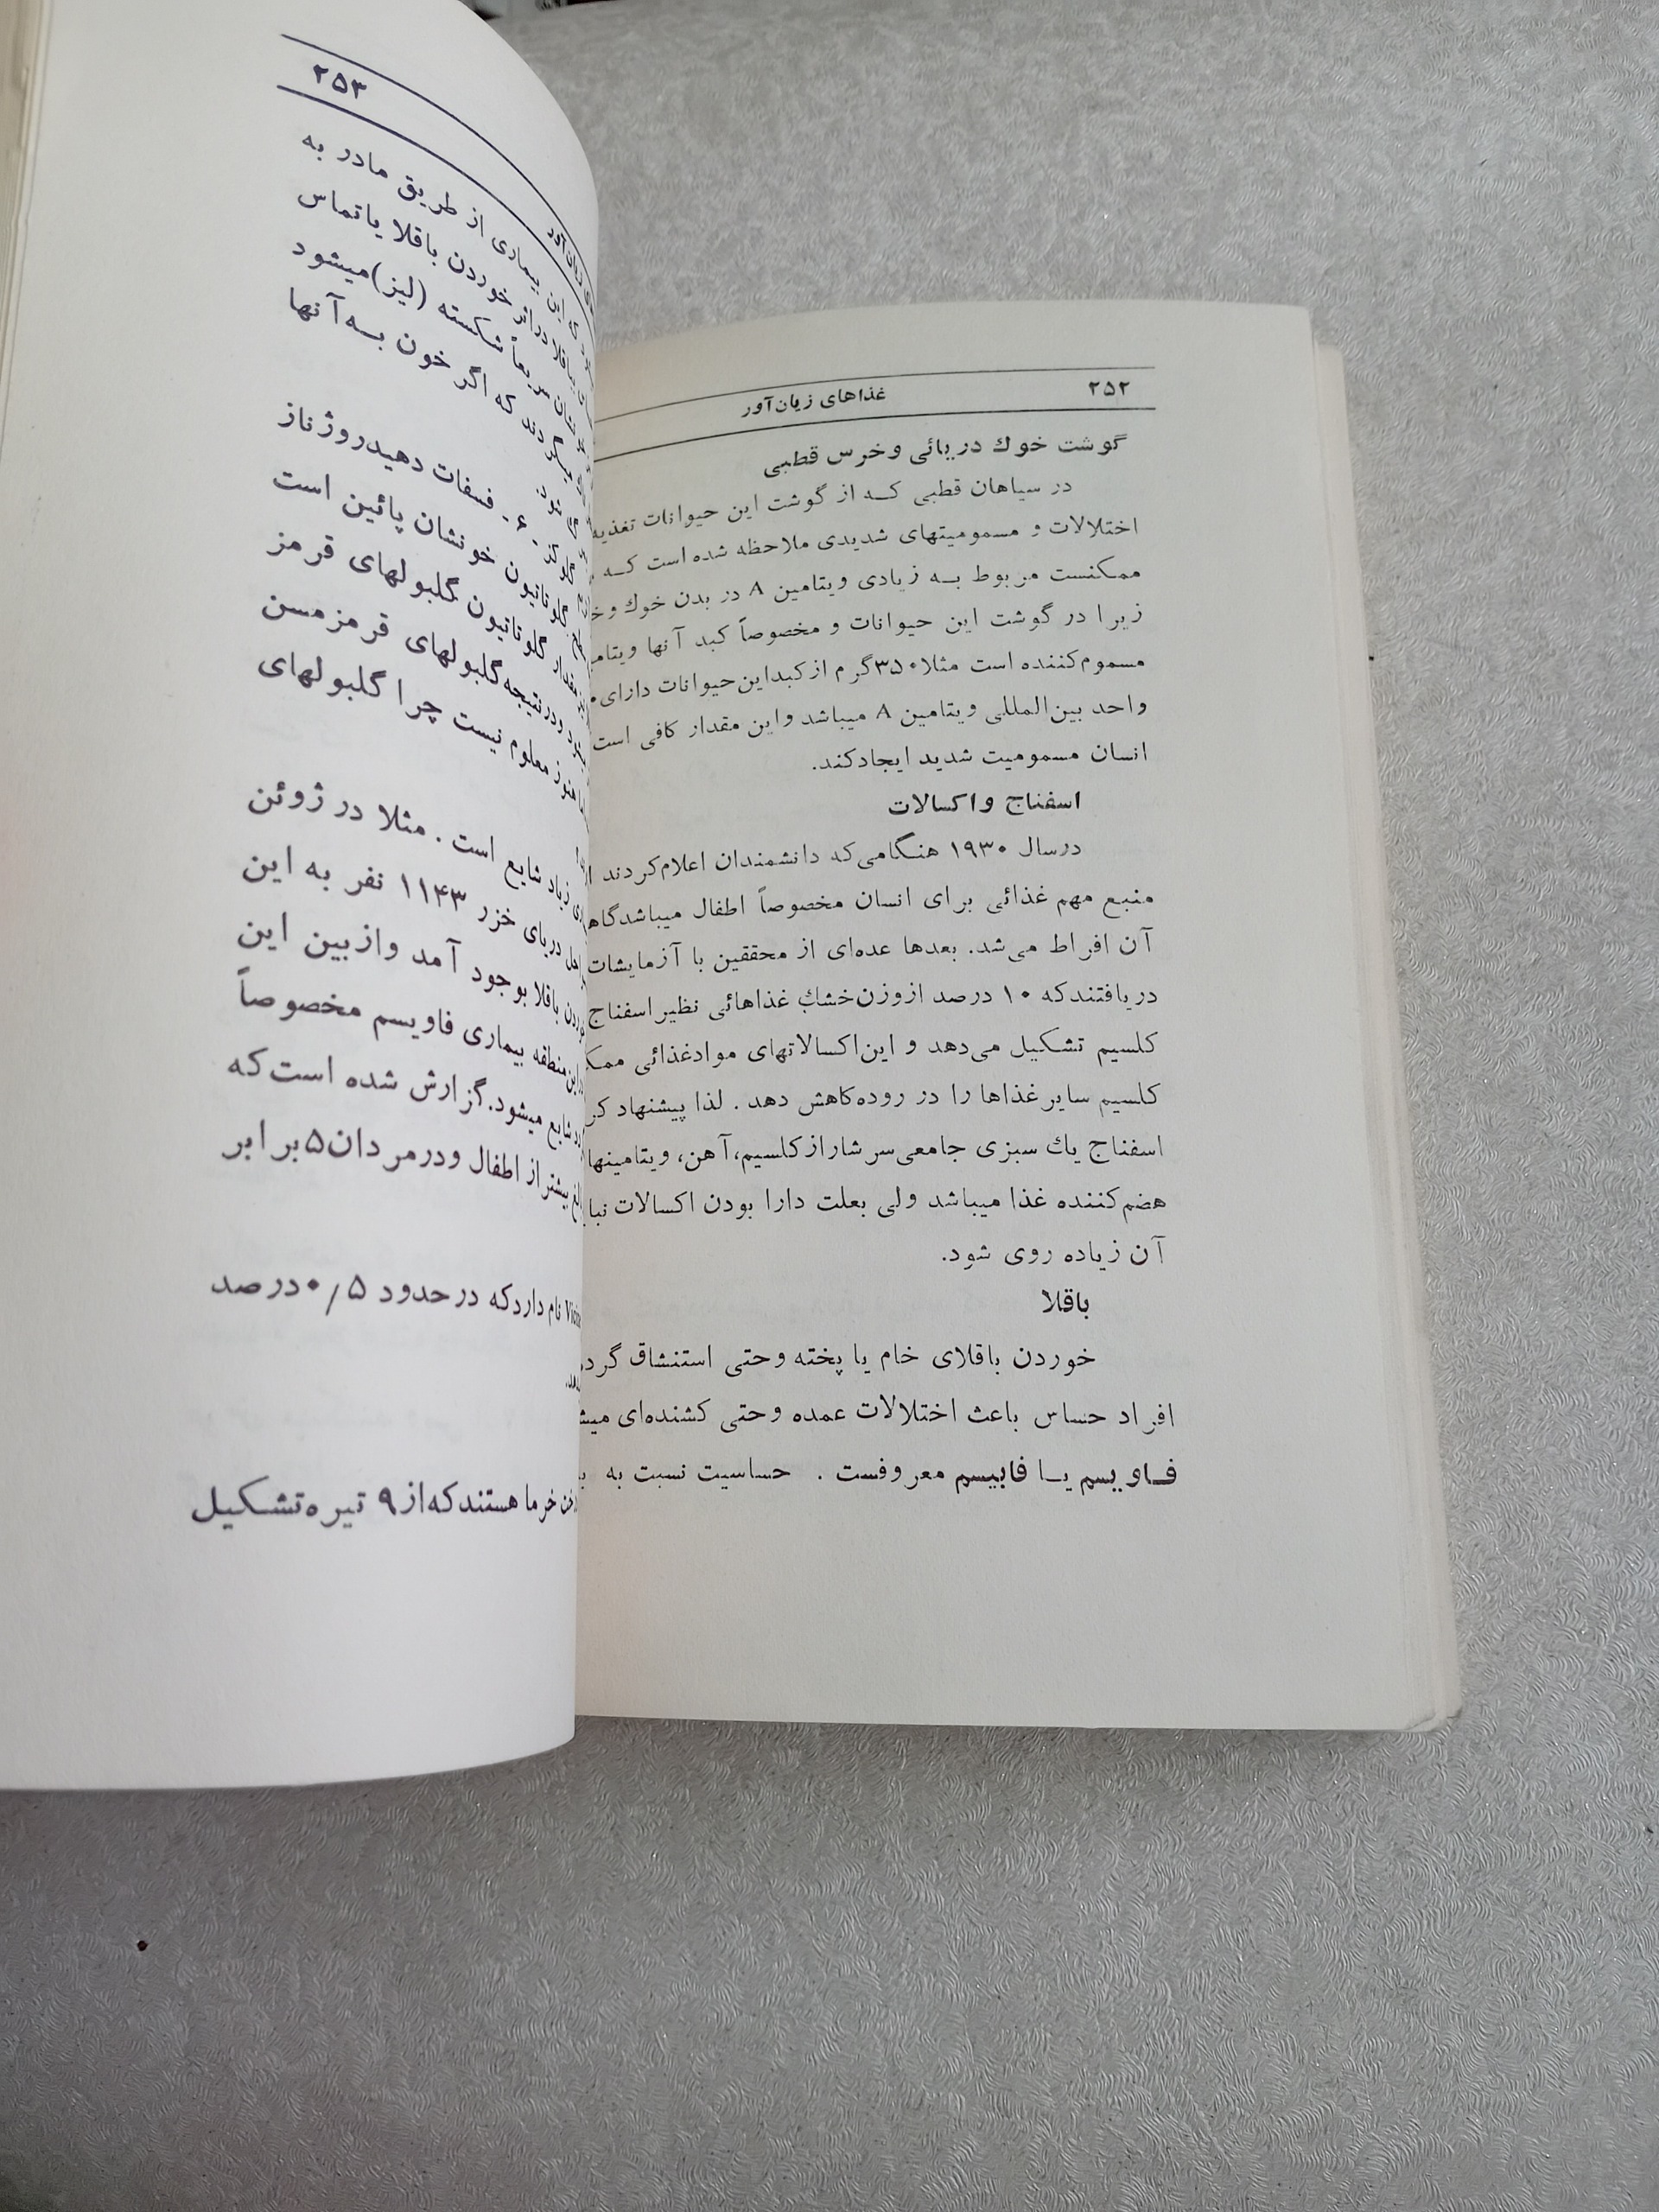 ۲۵۲
غذاهای زیان‌آور
گوشت خوك دریائی وخرس قطبی
در سیاهان قطبی که از گوشت این حیوانات تغذیه
اختلالات و مسمومیتهای شدیدی ملاحظه شده است که
ممکنست مربوط به زیادی ویتامین A در بدن خوك
زیرا در گوشت این حیوانات و مخصوصاً کبد آنها
مسموم‌کننده است مثلا ۳۵۰گرم ازکبداین‌حیوانات دارای
واحد بین‌المللی ویتامین A میباشد واین مقدار کافی است
انسان مسمومیت شدید ایجادکند.
اسفناج واکسالات
درسال ۱۹۳۰ هنگامی‌که دانشمندان اعلام‌کردند
منبع مهم غذائی برای انسان مخصوصاً اطفال میباشدگاه
آن افراط می‌شد. بعدها عده‌ای از محققین با آزمایشات
دریافتندکه ۱۰ درصد ازوزن‌خشك غذاهائی نظیراسفناج
کلسیم تشکیل می‌دهد و این‌اکسالاتهای موادغذائی
کلسیم سایرغذاها را در روده‌کاهش دهد . لذا پیشنهاد
اسفناج یك سبزی جامعی‌سرشارازکلسیم،آهن، ویتامینها
هضم‌کننده غذا میباشد ولی بعلت دارا بودن اکسالات
آن زیاده روی شود.
باقلا
خوردن باقلای خام یا پخته وحتی استنشاق
افراد حساس باعث اختلالات عمده وحتی کشنده‌ای
فاویسم یا فابیسم معروفست . حساسیت نسبت به
۲۵۳
این بیماری از طریق مادر به
خوردن باقلا یاتماس
سریعاً شکسته (لیز)میشود
که اگر خون به‌آنها
فسفات دهیدروژناز
گلوتاتیون خونشان پائین است
مقدار گلوتاتیون گلبولهای قرمز
ودرنتیجه‌گلبولهای قرمزمسن
هنوز معلوم نیست چرا گلبولهای
زیاد شایع است . مثلا در ژوئن
دریای خزر ۱۱۴۳ نفر به این
باقلا بوجود آمد وازبین این
منطقه بیماری فاویسم مخصوصاً
شایع میشود.گزارش شده است‌که
بیشتر از اطفال ودرمردان۵برابر
نام داردکه درحدود ۰/۵درصد
خرما هستندکه‌از۹ تیره‌تشکیل